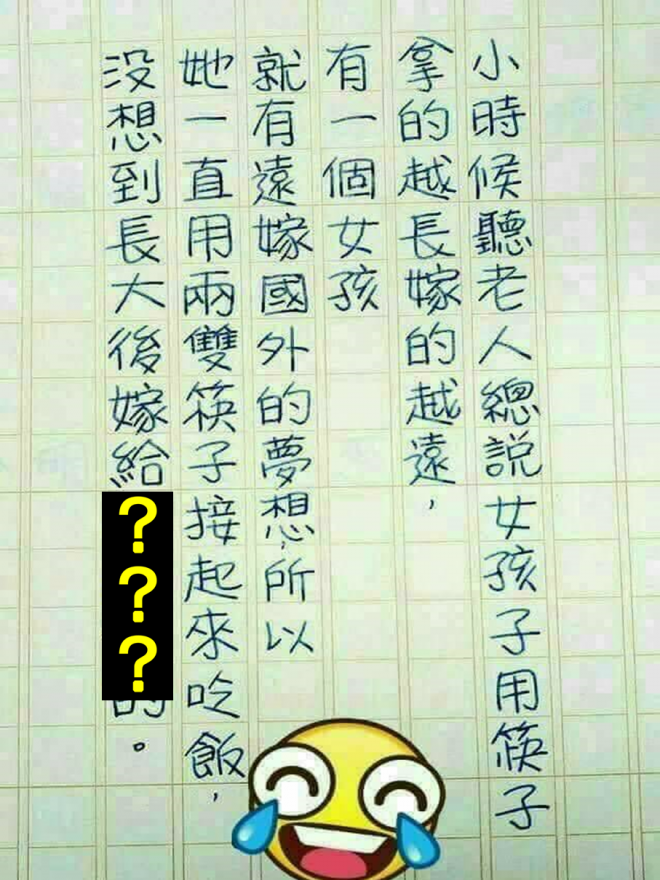 小時候聽老人總説女孩子用筷子
拿的越長嫁的越遠，
有一個女孩
就有遠嫁國外的夢想，所以
她一直用兩雙筷子接起來吃飯，
没想到長大後嫁給？？？的。